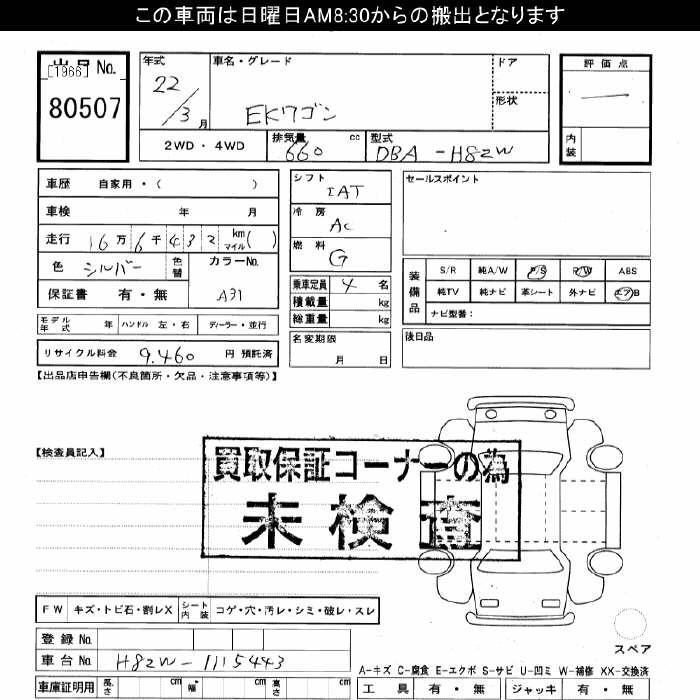 この車両は日曜日AM8:30からの搬出となります
出品 No.
[1966]
80507
年式
22/3月
車名・グレード
EKワゴン
ドア
形状
評価点
—
内装
2WD・4WD
排気量 660 cc
型式 DBA-H82W
車歴 自家用・( )
車検 年 月
走行 16万6千432 km マイル( )
色 シルバー 色替
カラーNo. A31
保証書 有・無
シフト IAT
冷房 AC
燃料 G
乗車定員 4 名
積載量 kg
総重量 kg
名変期限
月 日
セールスポイント
装備品
S/R 純A/W P/S P/W ABS
純TV 純ナビ 革シート 外ナビ エアB
ナビ型番:
後日品
モデル年式 年 ハンドル 左・右 ディーラー・並行
リサイクル料金 9,460 円 預託済
【出品店申告欄(不良箇所・欠品・注意事項等)】
【検査員記入】
買取保証コーナーの為
未検査
FW キズ・トビ石・割レX シート内装 コゲ・穴・汚レ・シミ・破レ・スレ
登録 No.
車台 No. H82W-1115443
車庫証明用 長さ cm 幅 cm 高さ cm
スペア
A-キズ C-腐食 E-エクボ S-サビ U-凹ミ W-補修 XX-交換済
工具 有・無 ジャッキ 有・無